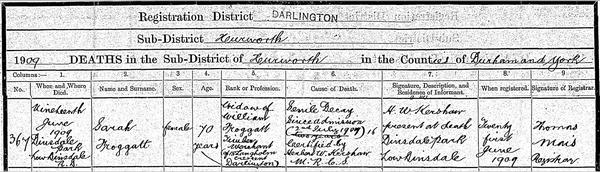 Registration District DARLINGTON
Sub-District Hurworth
1909 DEATHS in the Sub-District of Hurworth in the Counties of Durham and York
Columns:— 1. 2. 3. 4. 5. 6. 7. 8. 9.
No. When and Where Died. Name and Surname. Sex. Age. Rank or Profession. Cause of Death. Signature, Description, and Residence of Informant. When registered. Signature of Registrar.
367
Nineteenth
June
1909
Dinsdale
Park
Low Dinsdale
R.D.
Sarah
Froggatt
female
70
years
Widow of
William
Froggatt
Timber
Merchant
Darlington
Senile Decay
Since admission
(2nd July 1907)
Certified by
Herbert W. Kershaw
M.R.C.S.
H. W. Kershaw
present at death
Dinsdale Park
Low Dinsdale
Twenty
first
June
1909
Thomas
Registrar